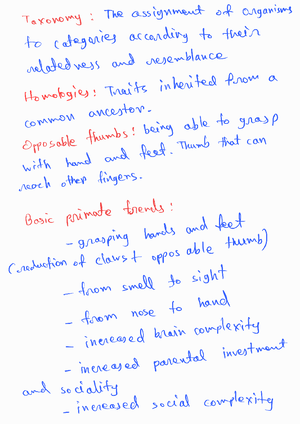 Taxonomy: The assignment of organisms
to categories according to their
relatedness and resemblance
Homologies: Traits inherited from a
common ancestor.
Opposable thumbs: being able to grasp
with hand and feet. Thumb that can
reach other fingers.
Basic primate trends:
- grasping hands and feet
(reduction of claws + opposable thumb)
- from smell to sight
- from nose to hand
- increased brain complexity
- increased parental investment
and sociality
- increased social complexity